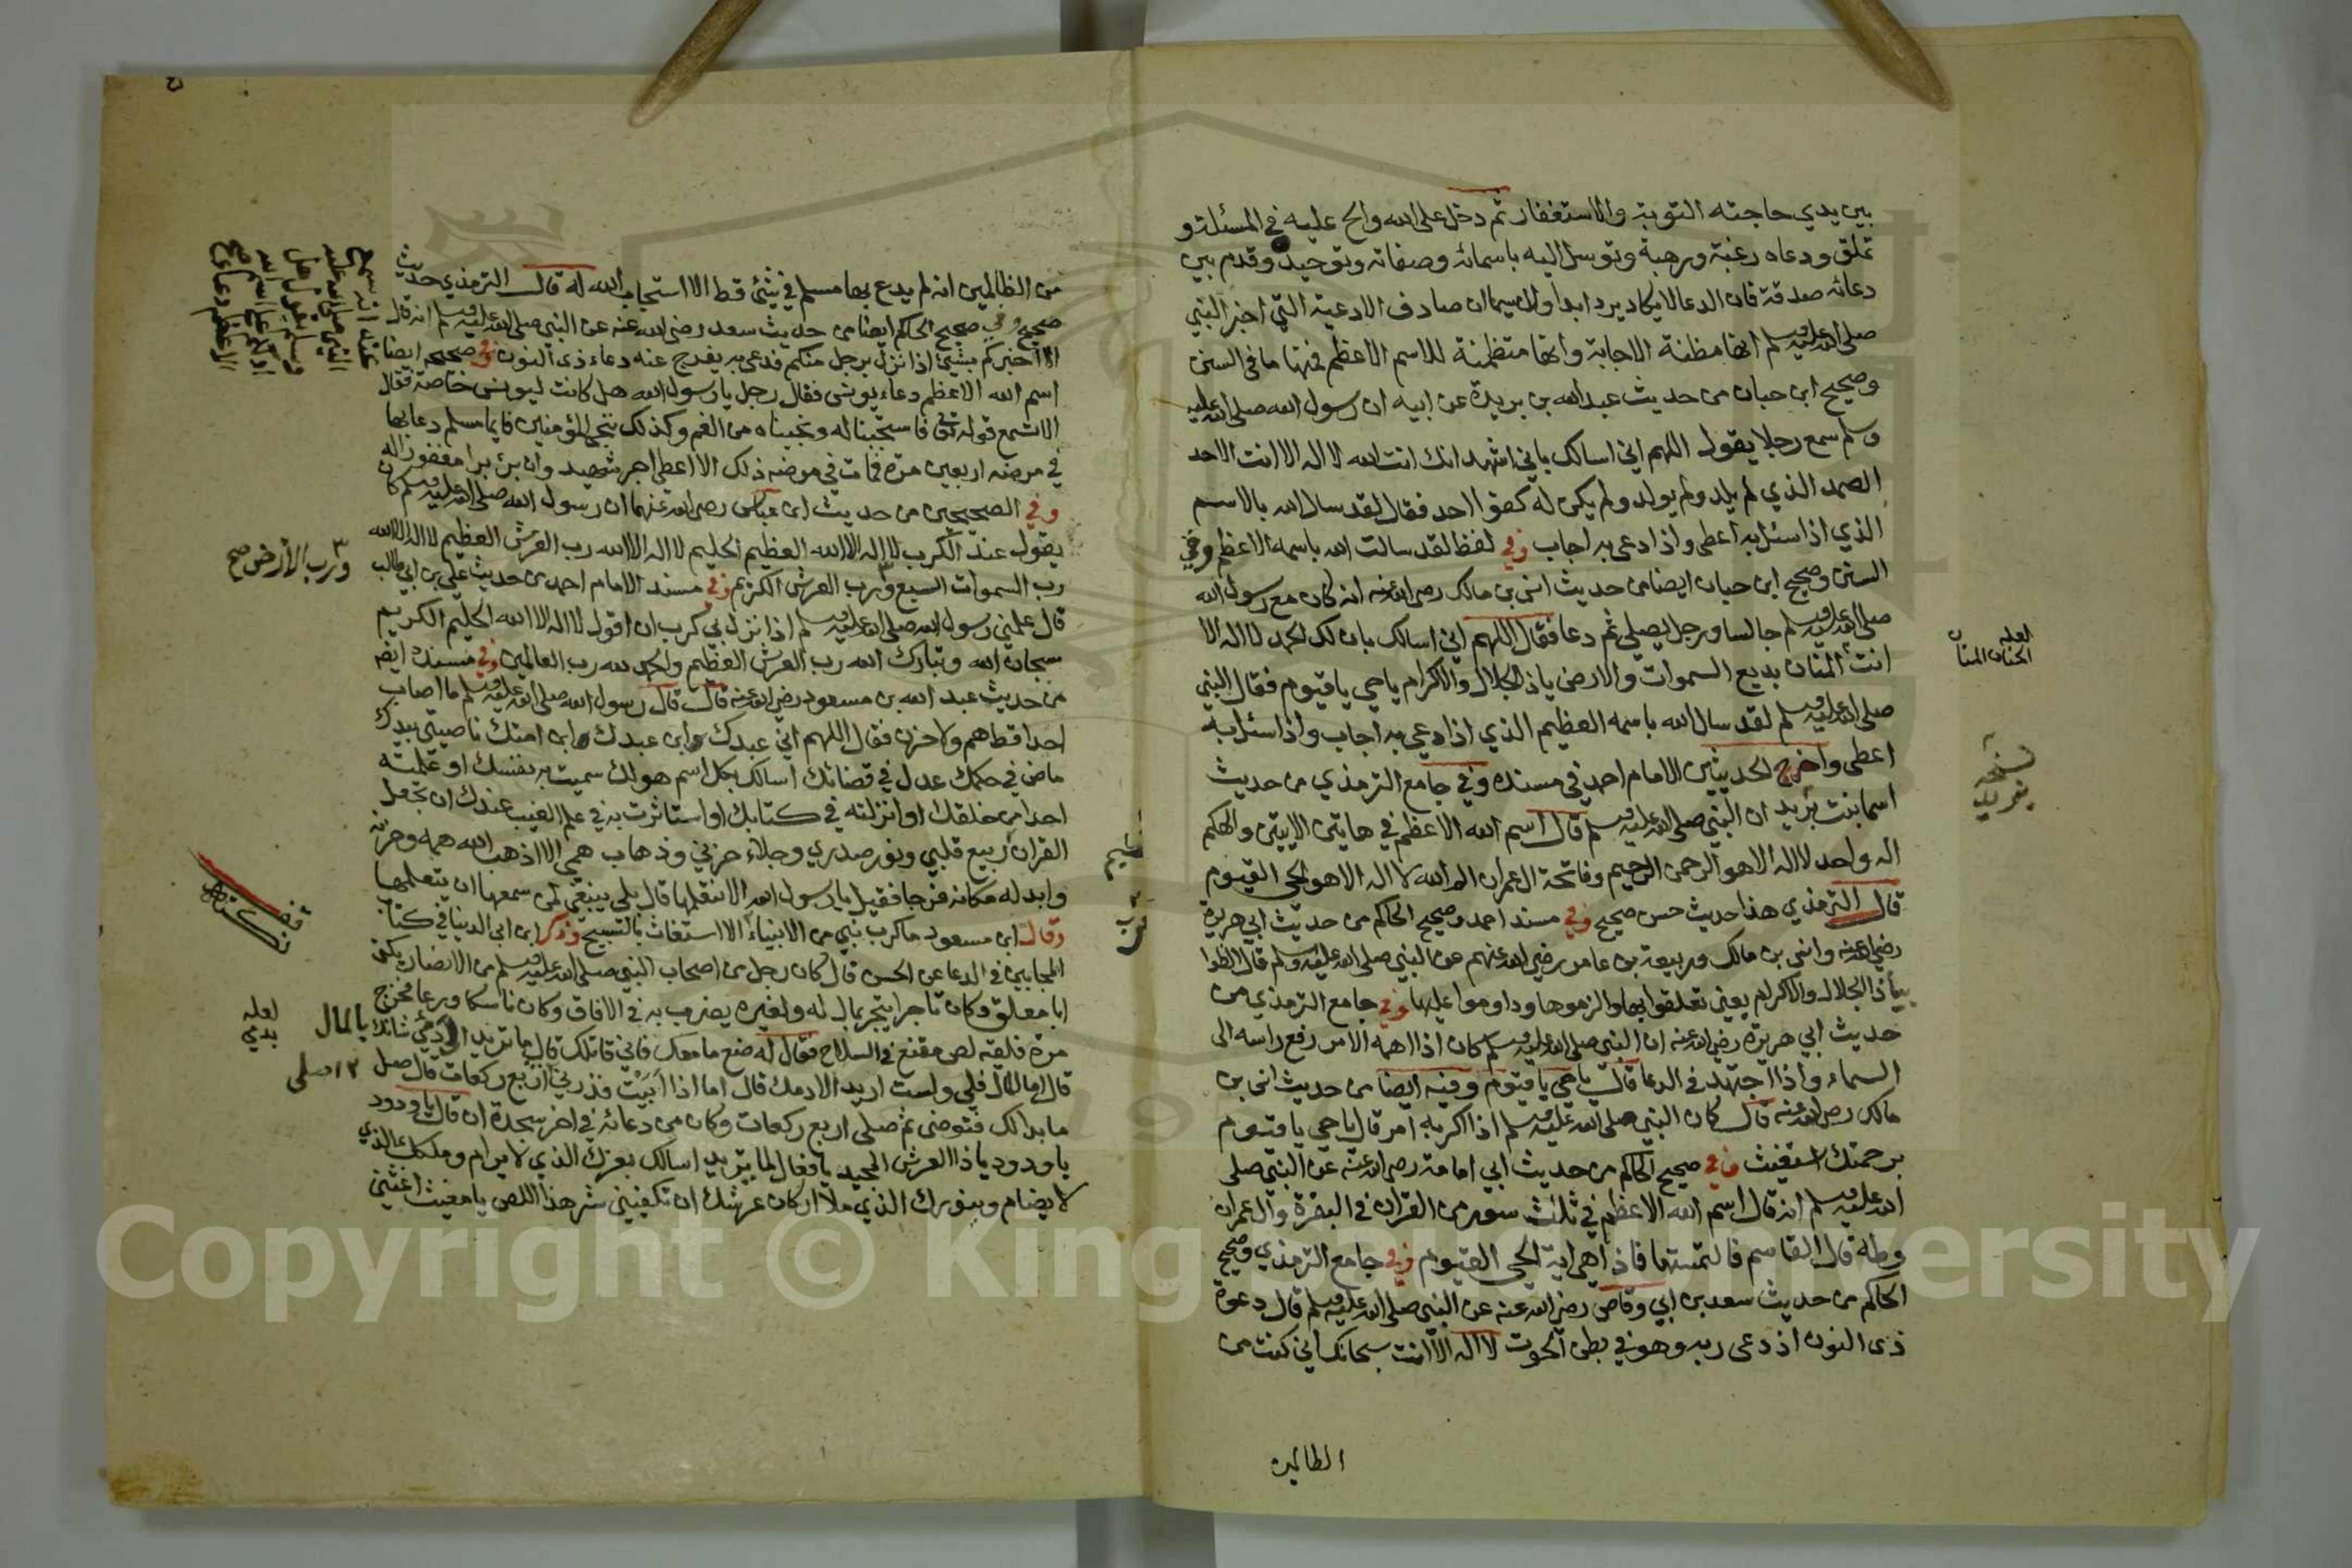 بين يدي حاجته التوبة والاستغفار ثم دخل على الله والح عليه في المسئلة و
تملق ودعاه رغبة ورهبة وتوسل اليه باسمائه وصفاته وتوحيده وقدم بين
دعائه صدقة فان الدعا لا يكاد يرد ابدا ولا سيما ان صادف الادعية التي اخبر النبي
صلى الله عليه وسلم انها مظنة الاجابة وانها متظمنة للاسم الاعظم فمنها ما في السنن
وصحيح ابن حبان من حديث عبد الله بن بريدة عن ابيه ان رسول الله صلى الله عليه
وسلم سمع رجلا يقول اللهم اني اسالك باني اشهد انك انت الله لا اله الا انت الاحد
الصمد الذي لم يلد ولم يولد ولم يكن له كفوا احد فقال لقد سال الله بالاسم
الذي اذا سئل به اعطى واذا دعى به اجاب وفي لفظ لقد سالت الله باسمه الاعظم وفي
السنن وصحيح ابن حبان ايضا من حديث انس بن مالك رضي الله عنه انه كان مع رسول الله
صلى الله عليه وسلم جالسا ورجل يصلي ثم دعا فقال اللهم اني اسالك بان لك الحمد لا اله الا
انت المنان بديع السموات والارض ياذا الجلال والاكرام يا حي يا قيوم فقال النبي
صلى الله عليه وسلم لقد سال الله باسمه العظيم الذي اذا دعي به اجاب واذا سئل به
اعطى واخرج الحديثين الامام احمد في مسنده وفي جامع الترمذي من حديث
اسما بنت يزيد ان النبي صلى الله عليه وسلم قال اسم الله الاعظم في هاتين الايتين والهكم
اله واحد لا اله الا هو الرحمن الرحيم وفاتحة ال عمران الم الله لا اله الا هو الحي القيوم
قال الترمذي هذا حديث حسن صحيح وفي مسند احمد وصحيح الحاكم من حديث ابي هريرة
رضي الله عنه وانس بن مالك وربيعة بن عامر رضي الله عنهم عن النبي صلى الله عليه وسلم قال الظوا
بياذا الجلال والاكرام يعني تعلقوا بها والزموها وداوموا عليها وفي جامع الترمذي من
حديث ابي هريرة رضي الله عنه ان النبي صلى الله عليه وسلم كان اذا اهمه الامر رفع راسه الى
السماء واذا اجتهد في الدعا قال يا حي يا قيوم وفيه ايضا من حديث انس بن
مالك رضي الله عنه قال كان النبي صلى الله عليه وسلم اذا اكربه امر قال يا حي يا قيوم
برحمتك استغيث وفي صحيح الحاكم من حديث ابي امامة رضي الله عنه عن النبي صلى
الله عليه وسلم انه قال اسم الله الاعظم في ثلث سور من القران في البقرة وال عمران
وطه قال القاسم فالتمستها فاذا هي اية الحي القيوم وفي جامع الترمذي وصحيح
الحاكم من حديث سعد بن ابي وقاص رضي الله عنه عن النبي صلى الله عليه وسلم قال دعوة
ذي النون اذ دعى ربه وهو في بطن الحوت لا اله الا انت سبحانك اني كنت من
الظالمين
لعله
الحنان المنان
نسخه
من الظالمين انه لم يدع بها مسلم في شئ قط الا استجاب الله له قال الترمذي حديث
صحيح وفي صحيح الحاكم ايضا من حديث سعد رضي الله عنه عن النبي صلى الله عليه وسلم انه قال
الا اخبركم بشئ اذا نزل برجل منكم فدعى به يفرج عنه دعاء ذي النون وفي صحيحه ايضا
اسم الله الاعظم دعاء يونس فقال رجل يا رسول الله هل كانت ليونس خاصة فقال
الا تسمع قوله تعالى فاستجبنا له ونجيناه من الغم وكذلك ننجي المؤمنين فايما مسلم دعا بها
في مرضه اربعين مرة فمات في مرضه ذلك الا اعطى اجر شهيد وان برئ برا مغفورا له
وفي الصحيحين من حديث ابن عباس رضي الله عنهما ان رسول الله صلى الله عليه وسلم كان
يقول عند الكرب لا اله الا الله العظيم الحليم لا اله الا الله رب العرش العظيم لا اله الا الله
رب السموات السبع ورب العرش الكريم وفي مسند الامام احمد من حديث علي بن ابي طالب
قال علمني رسول الله صلى الله عليه وسلم اذا نزل بي كرب ان اقول لا اله الا الله الحليم الكريم
سبحان الله وتبارك الله رب العرش العظيم والحمد لله رب العالمين وفي مسنده ايضا
من حديث عبد الله بن مسعود رضي الله عنه قال قال رسول الله صلى الله عليه وسلم ما اصاب
احدا قط هم ولا حزن فقال اللهم اني عبدك وابن عبدك وابن امتك ناصيتي بيدك
ماض في حكمك عدل في قضائك اسالك بكل اسم هو لك سميت به نفسك او علمته
احدا من خلقك او انزلته في كتابك او استاثرت به في علم الغيب عندك ان تجعل
القران ربيع قلبي ونور صدري وجلاء حزني وذهاب همي الا اذهب الله همه وحزنه
وابدله مكانه فرجا فقيل يا رسول الله الا نتعلمها قال بلى ينبغي لمن سمعها ان يتعلمها
وقال ابن مسعود ما كرب نبي من الانبياء الا استغاث بالتسبيح وذكر ابن ابي الدنيا في كتاب
المجابين في الدعا عن الحسن قال كان رجل من اصحاب النبي صلى الله عليه وسلم من الانصار يكنى
ابا معلق وكان تاجرا يتجر بمال له ولغيره يضرب به في الافاق وكان ناسكا ورعا فخرج
مرة فلقيه لص مقنع في السلاح فقال له ضع ما معك فاني قاتلك قال ما تريد الا دمي شانك بالمال
قال اما المال فلي ولست اريد الا دمك قال اما اذا ابيت فذرني اربع ركعات قال صل
ما بدا لك فتوضى ثم صلى اربع ركعات وكان من دعائه في اخر سجدة ان قال يا ودود
يا ودود ياذا العرش المجيد يا فعال لما يريد اسالك بعزك الذي لا يرام وملكك الذي
لا يضام وبنورك الذي ملا اركان عرشك ان تكفيني شر هذا اللص يا مغيث اغثني
ورب الأرض صح
لعله
Copyright © King Saud University